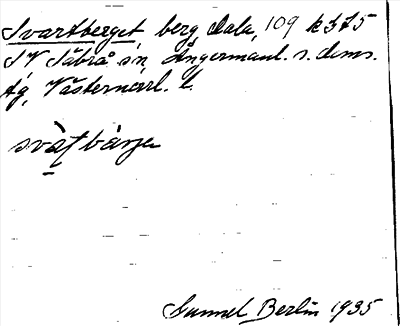 Svartberget, berg, Dala, 109 k 375
S V Säbrå sn, Ångermanl. s. doms.
tg, Västernorrl. l.
svàṭbàrje
Gunnel Berlin 1935